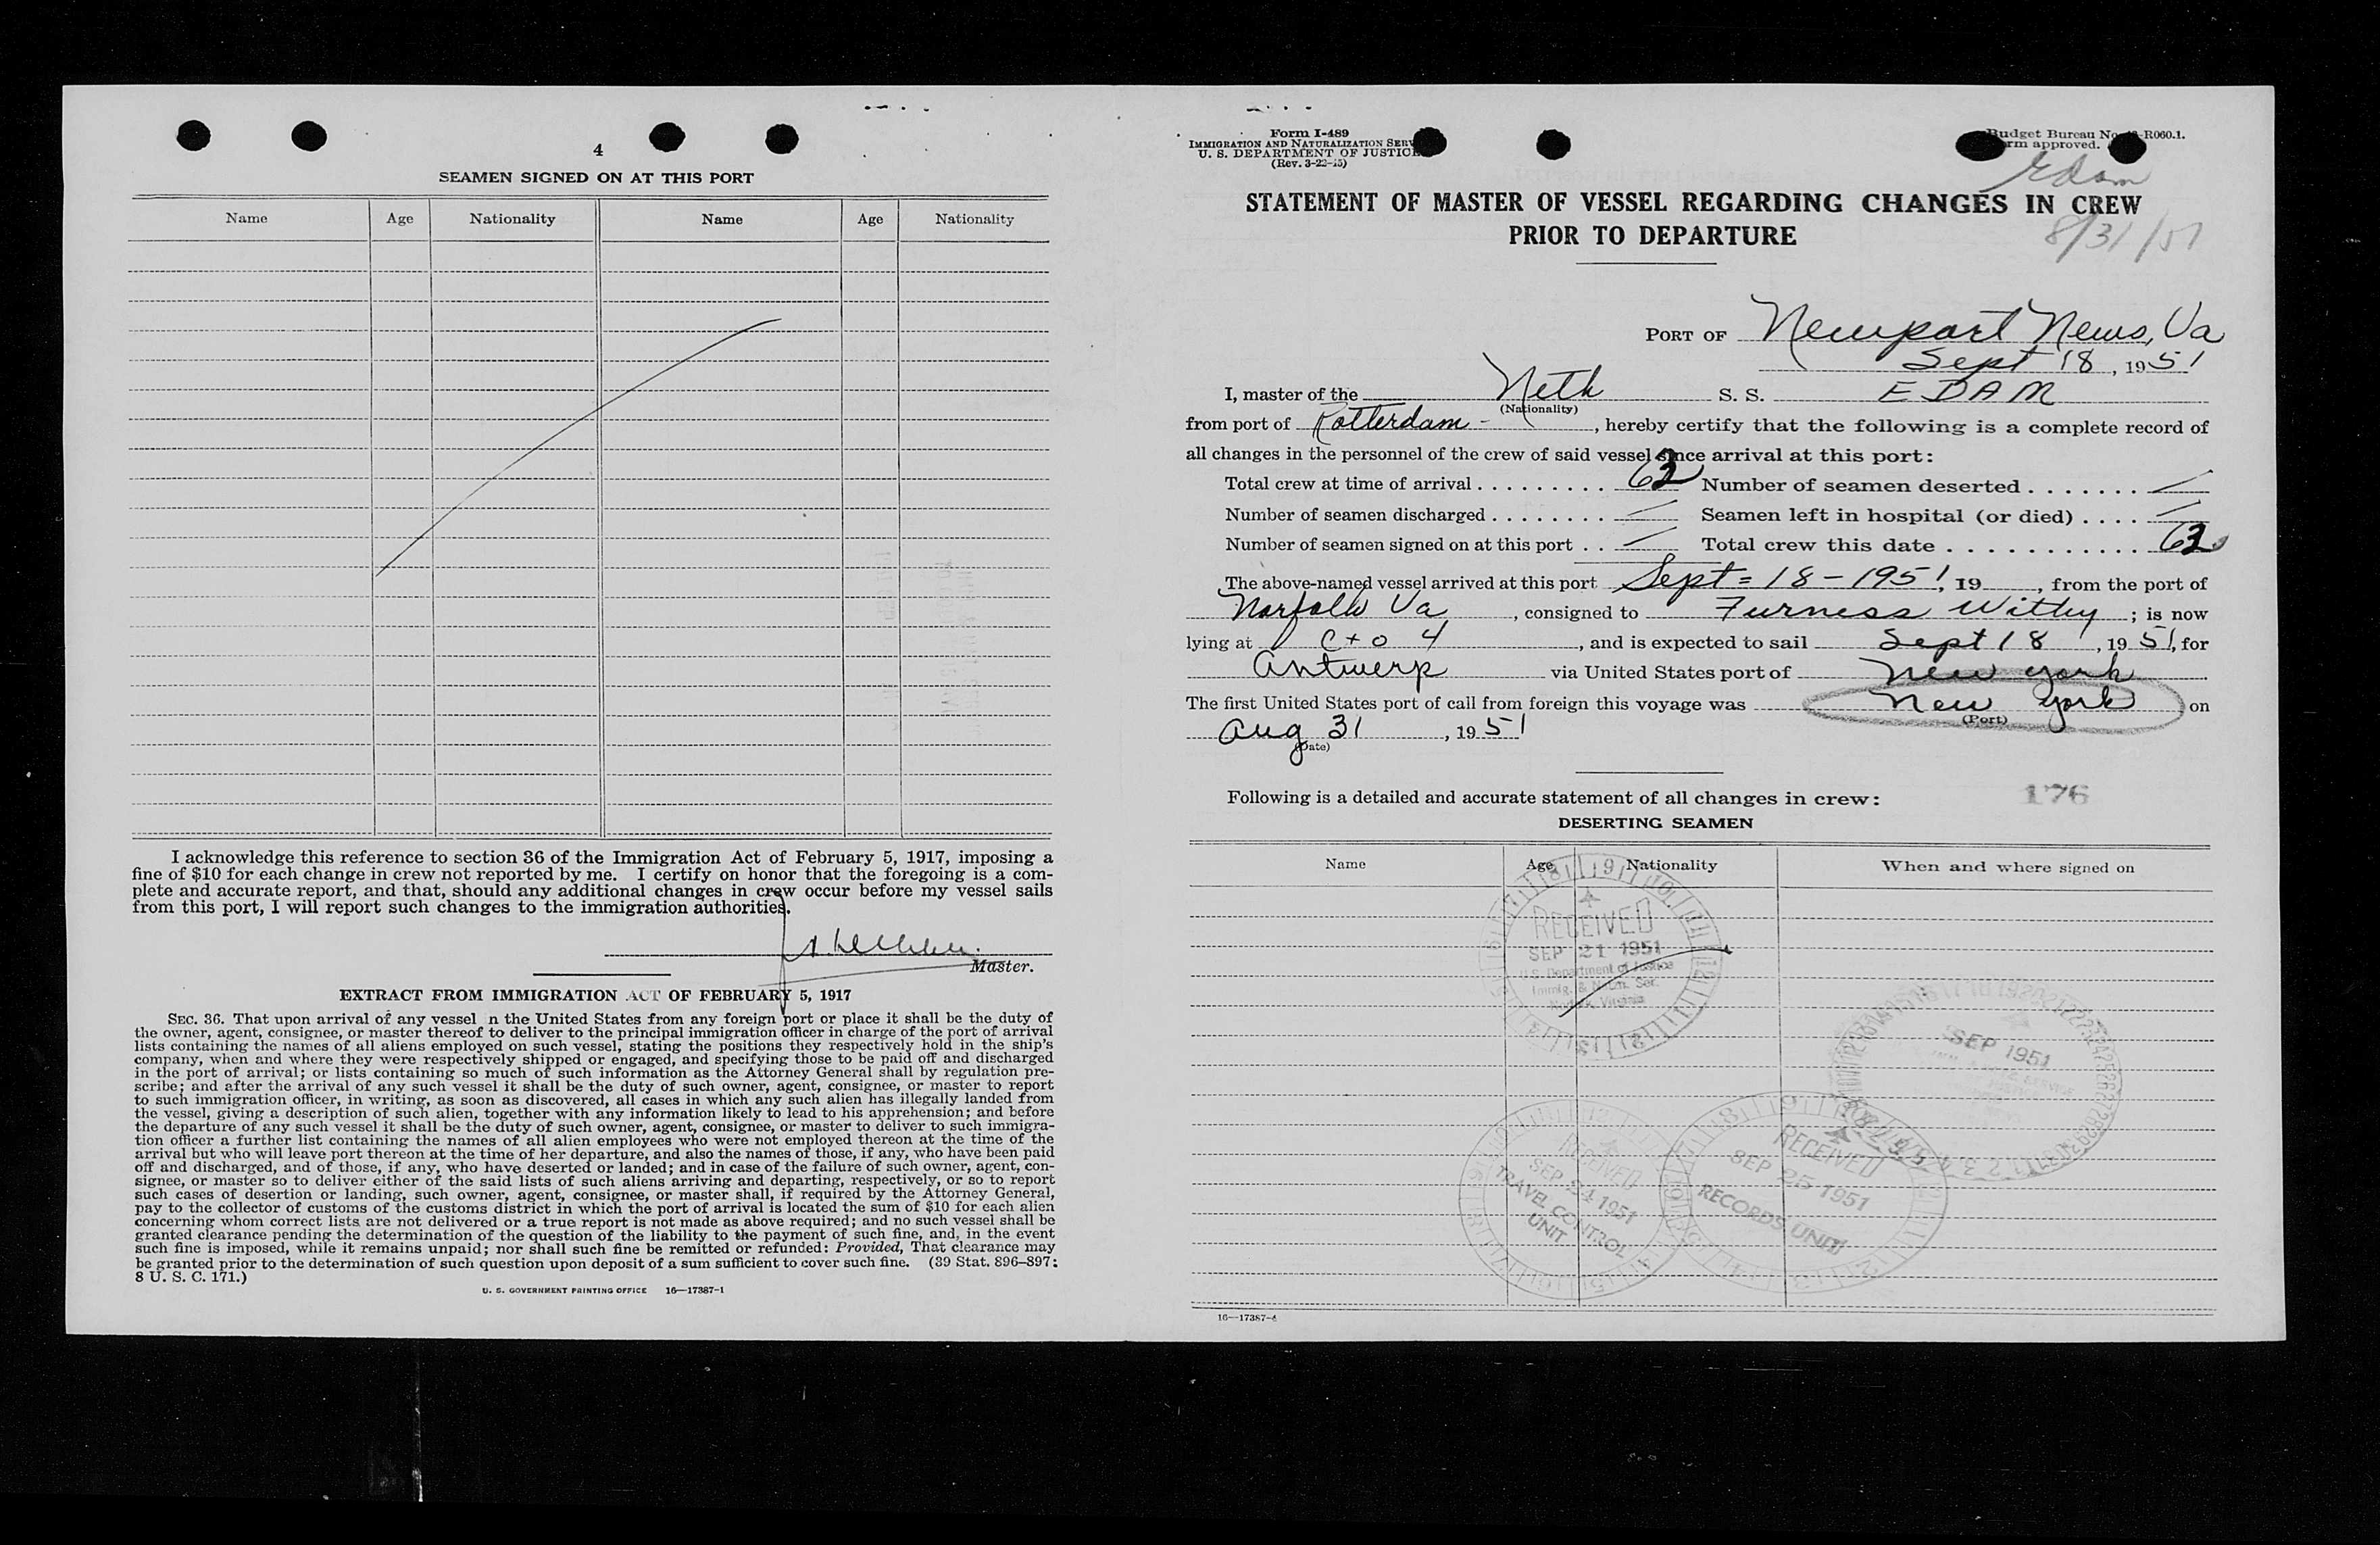 4
SEAMEN SIGNED ON AT THIS PORT
Name Age Nationality Name Age Nationality
I acknowledge this reference to section 36 of the Immigration Act of February 5, 1917, imposing a
fine of $10 for each change in crew not reported by me. I certify on honor that the foregoing is a com-
plete and accurate report, and that, should any additional changes in crew occur before my vessel sails
from this port, I will report such changes to the immigration authorities.
Master.
EXTRACT FROM IMMIGRATION ACT OF FEBRUARY 5, 1917
SEC. 36. That upon arrival of any vessel n the United States from any foreign port or place it shall be the duty of
the owner, agent, consignee, or master thereof to deliver to the principal immigration officer in charge of the port of arrival
lists containing the names of all aliens employed on such vessel, stating the positions they respectively hold in the ship's
company, when and where they were respectively shipped or engaged, and specifying those to be paid off and discharged
in the port of arrival; or lists containing so much of such information as the Attorney General shall by regulation pre-
scribe; and after the arrival of any such vessel it shall be the duty of such owner, agent, consignee, or master to report
to such immigration officer, in writing, as soon as discovered, all cases in which any such alien has illegally landed from
the vessel, giving a description of such alien, together with any information likely to lead to his apprehension; and before
the departure of any such vessel it shall be the duty of such owner, agent, consignee, or master to deliver to such immigra-
tion officer a further list containing the names of all alien employees who were not employed thereon at the time of the
arrival but who will leave port thereon at the time of her departure, and also the names of those, if any, who have been paid
off and discharged, and of those, if any, who have deserted or landed; and in case of the failure of such owner, agent, con-
signee, or master so to deliver either of the said lists of such aliens arriving and departing, respectively, or so to report
such cases of desertion or landing, such owner, agent, consignee, or master shall, if required by the Attorney General,
pay to the collector of customs of the customs district in which the port of arrival is located the sum of $10 for each alien
concerning whom correct lists are not delivered or a true report is not made as above required; and no such vessel shall be
granted clearance pending the determination of the question of the liability to the payment of such fine, and, in the event
such fine is imposed, while it remains unpaid; nor shall such fine be remitted or refunded: Provided, That clearance may
be granted prior to the determination of such question upon deposit of a sum sufficient to cover such fine. (39 Stat. 896–897;
8 U. S. C. 171.)
U. S. GOVERNMENT PRINTING OFFICE 16—17387-1
Form I-489
IMMIGRATION AND NATURALIZATION SERV
U. S. DEPARTMENT OF JUSTIC
(Rev. 3-22-45)
Budget Bureau No. -R060.1.
rm approved.
Edam
8/31/51
STATEMENT OF MASTER OF VESSEL REGARDING CHANGES IN CREW
PRIOR TO DEPARTURE
PORT OF Newport News, Va
Sept 18, 1951
I, master of the Neth S. S. EDAM
(Nationality)
from port of Rotterdam -, hereby certify that the following is a complete record of
all changes in the personnel of the crew of said vessel since arrival at this port:
Total crew at time of arrival . . . . . . . . . 62 Number of seamen deserted . . . . . . . —
Number of seamen discharged . . . . . . . . — Seamen left in hospital (or died) . . . . —
Number of seamen signed on at this port . . — Total crew this date . . . . . . . . . . . . 62
The above-named vessel arrived at this port Sept = 18 - 1951, 19, from the port of
Norfolk Va, consigned to Furness Withy; is now
lying at C + O 4, and is expected to sail Sept 18, 1951, for
Antwerp via United States port of New York
The first United States port of call from foreign this voyage was New York on
(Port)
Aug 31, 1951
(Date)
Following is a detailed and accurate statement of all changes in crew:
176
DESERTING SEAMEN
Name Age Nationality When and where signed on
RECEIVED
SEP 21 1951
U.S. Department of Justice
Immig. & Natn. Ser.
Norfolk, Virginia
SEP 1951
RECEIVED
SEP 24 1951
TRAVEL CONTROL
UNIT
RECEIVED
SEP 25 1951
RECORDS UNIT
16—17387-4